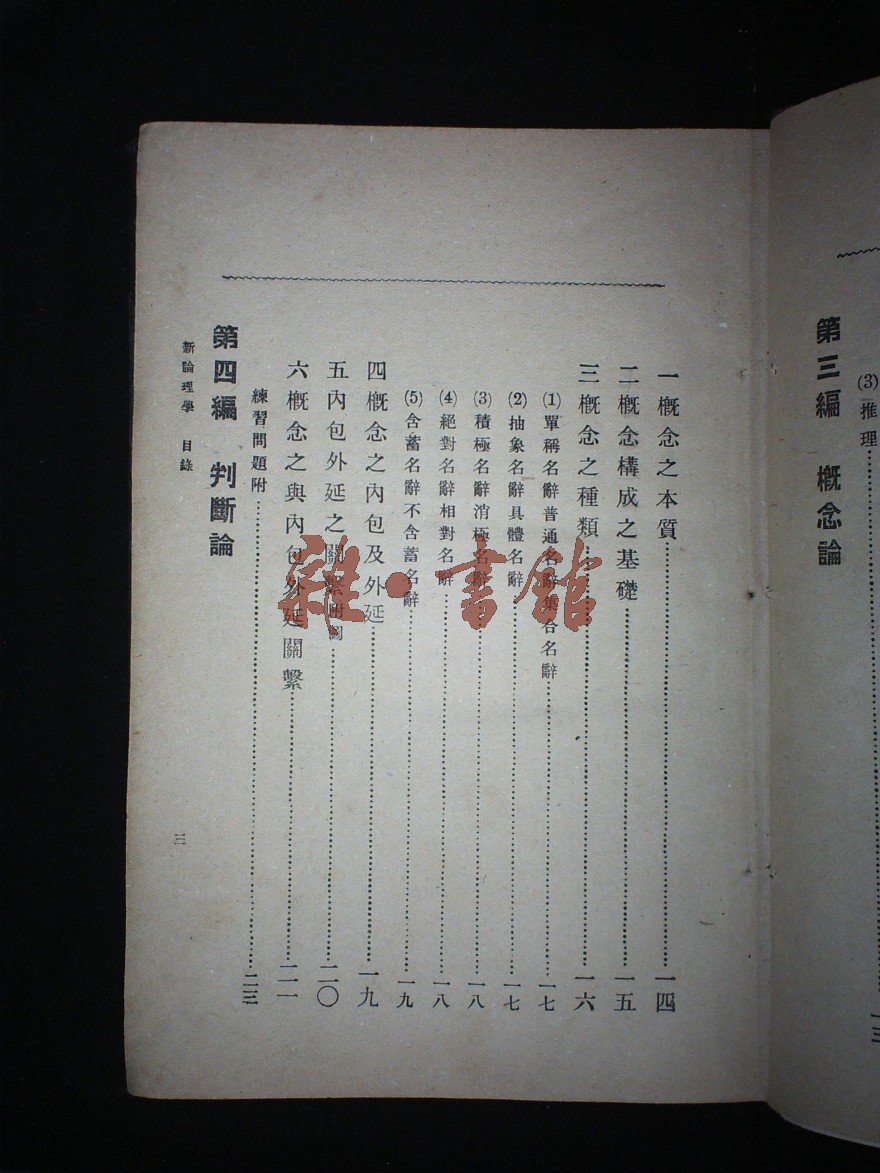 (3)推理……一三
第三編　概念論
一概念之本質……一四
二概念構成之基礎……一五
三概念之種類……一六
(1)單稱名辭普通名辭集合名辭……一七
(2)抽象名辭具體名辭……一七
(3)積極名辭消極名辭……一八
(4)絕對名辭相對名辭……一八
(5)含蓄名辭不含蓄名辭……一九
四概念之內包及外延……一九
五內包外延之關繫附圖……二〇
六概念之與內包外延關繫……二一
練習問題附……二三
第四編　判斷論
新論理學　目錄
三
雜·書館